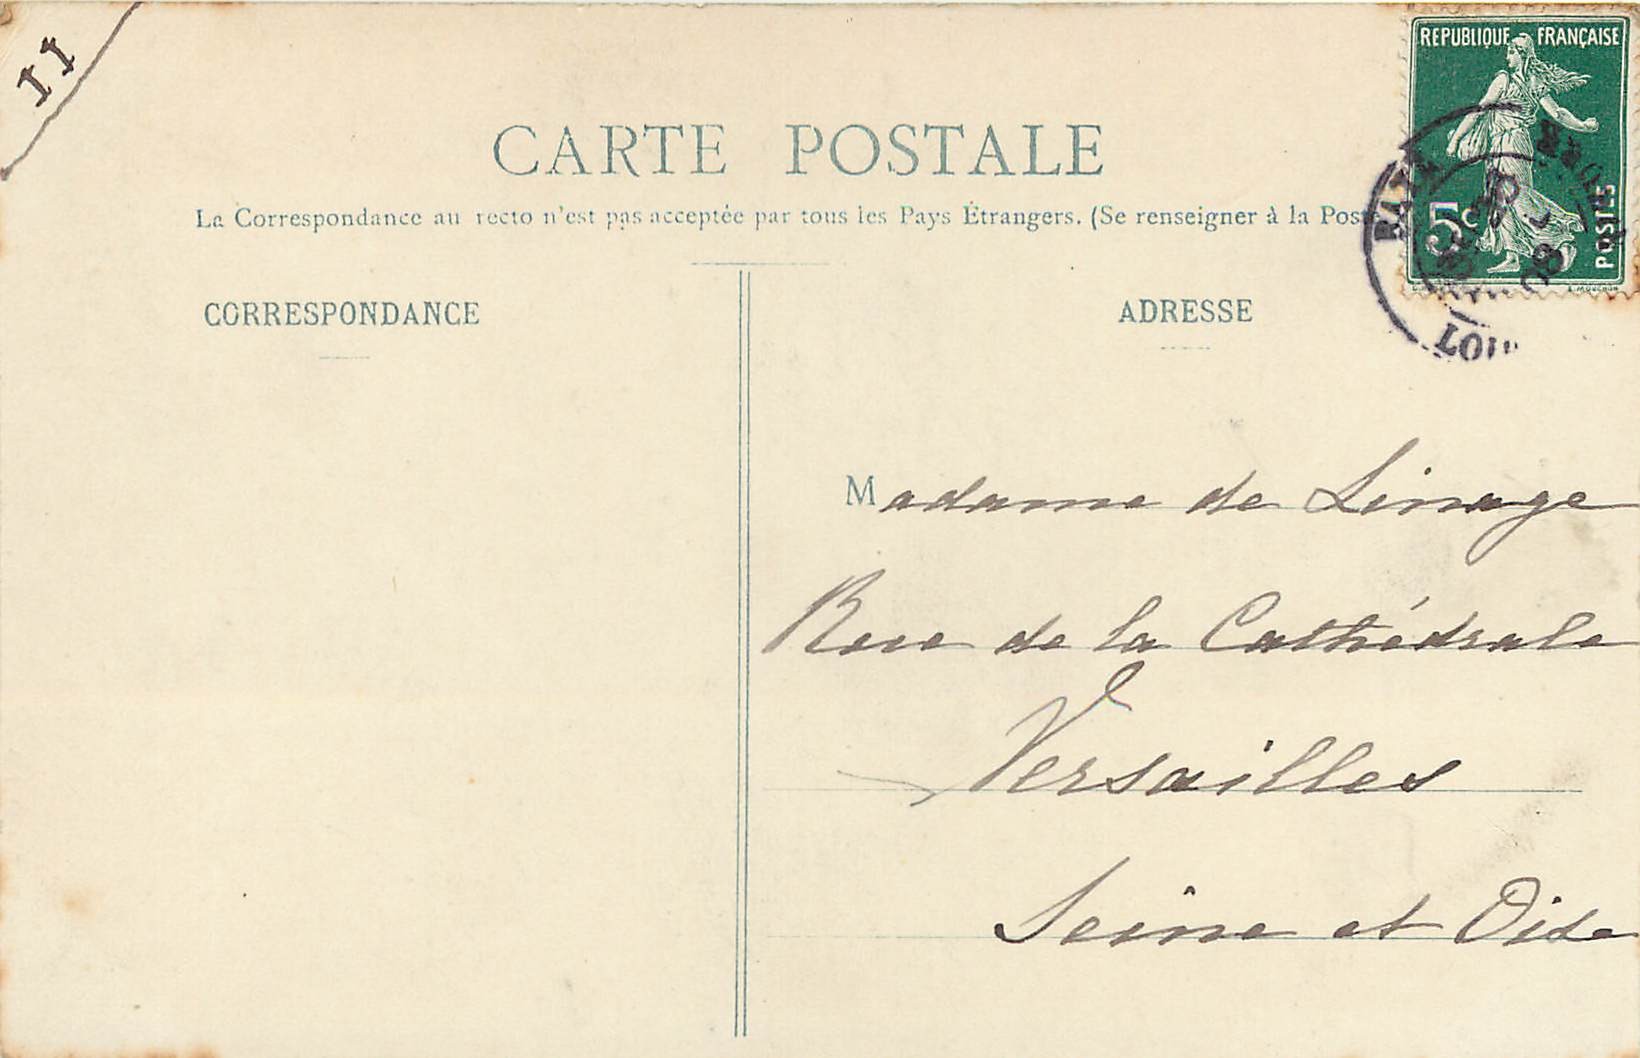 II
REPUBLIQUE FRANÇAISE
5c
POSTES
CARTE POSTALE
La Correspondance au recto n'est pas acceptée par tous les Pays Étrangers. (Se renseigner à la Post
CORRESPONDANCE
ADRESSE
Madame de Linage
Rue de la Cathédrale
Versailles
Seine et Oise